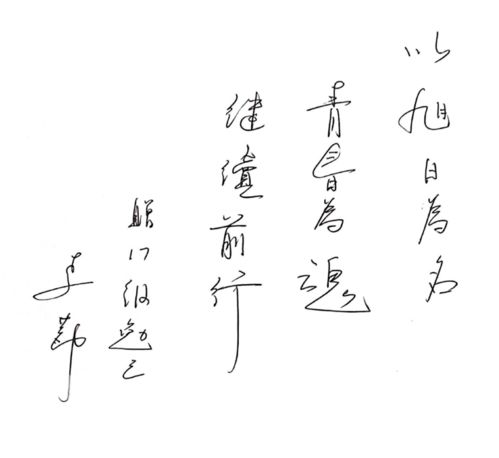 以旭日為名
青春為魂
继續前行
贈17级勉之
李勤